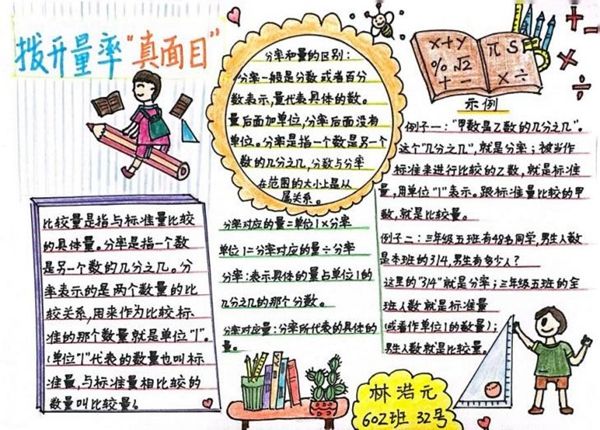 拨开量率"真面目"
分率和量的区别:
分率一般是分数或者百分
数表示,量代表具体的数。
量后面加单位,分率后面没有
单位。分率是指一个数是另一个
数的几分之几,分数与分率
在范围的大小上是从
属关系。
x+y
%√2
+-
π S
×÷
示例
例子一:"甲数是乙数的几分之几"。
这个"几分之几",就是分率;被当作
标准来进行比较的乙数,就是标准
量,用单位"1"表示。跟标准量比较的甲
数,就是比较量。
例子二:三年级五班有48名同学,男生人数
是本班的3/4,男生有多少人?
这里的"3/4"就是分率;三年级五班的全
班人数就是标准量
(或看作单位1的数量);
男生人数就是比较量。
比较量是指与标准量比较
的具体量。分率是指一个数
是另一个数的几分之几。分
率表示的是两个数量的比
较关系,用来作为比较标
准的那个数量就是单位"1"。
(单位"1"代表的数量也叫标
准量,与标准量相比较的
数量叫比较量。
分率对应的量=单位1×分率
单位1=分率对应的量÷分率
分率:表示具体的量与单位1的
几分之几的那个分数。
分率对应量:分率所代表的具体的
量。
林浩元
602班 32号